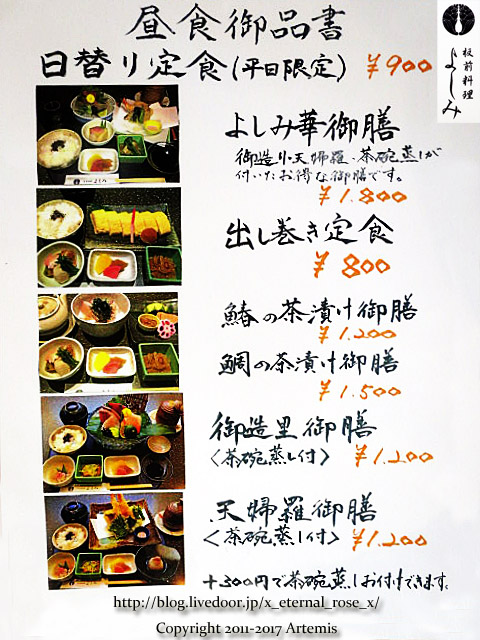 昼食御品書
日替り定食(平日限定) ¥900
板前料理
よしみ
よしみ華御膳
御造り・天婦羅・茶碗蒸しが
付いたお得な御膳です。
¥1.800
出し巻き定食
¥800
鰆の茶漬け御膳
¥1.200
鯛の茶漬け御膳
¥1.500
御造里御膳
〈茶碗蒸し付〉 ¥1.200
天婦羅御膳
〈茶碗蒸し付〉 ¥1.200
+300円で茶碗蒸しお付けできます。
http://blog.livedoor.jp/x_eternal_rose_x/
Copyright 2011-2017 Artemis